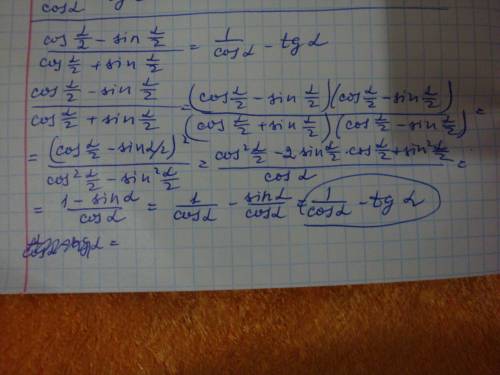 cos α
(cos α/2 - sin α/2)/(cos α/2 + sin α/2) = 1/cos α - tg α
(cos α/2 - sin α/2)/(cos α/2 + sin α/2) = (cos α/2 - sin α/2)(cos α/2 - sin α/2)/(cos α/2 + sin α/2)(cos α/2 - sin α/2) =
= (cos α/2 - sin α/2)²/(cos² α/2 - sin² α/2) = (cos² α/2 - 2 sin α/2 · cos α/2 + sin² α/2)/cos α =
= (1 - sin α)/cos α = 1/cos α - sin α/cos α = 1/cos α - tg α